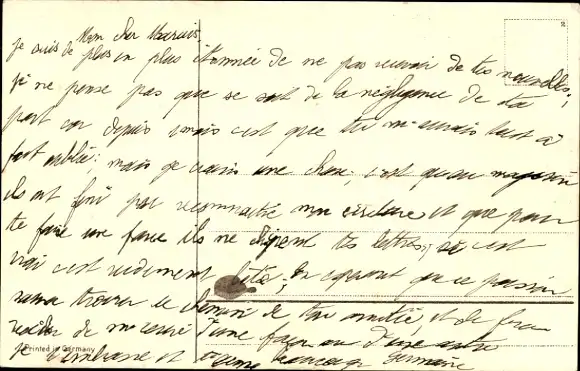 Mon cher Marcus,
je suis de plus en plus étonnée de ne pas recevoir de tes nouvelles;
je ne pense pas que ce soit de la négligence de ta
part car depuis mais c'est que tu m'aurais tout à
fait oublié; mais je crains une chose; c'est qu'au magasin
ils ont fini par reconnaître mon écriture et que pour
te faire une farce ils ne tes lettres; si c'est
vrai c'est rudement bête; en espérant que ce
saura trouver le chemin de ton amitié, et de
de m'écrire d'une façon ou d'une autre
je t'embrasse et t'aime beaucoup Germaine
Printed in Germany
2